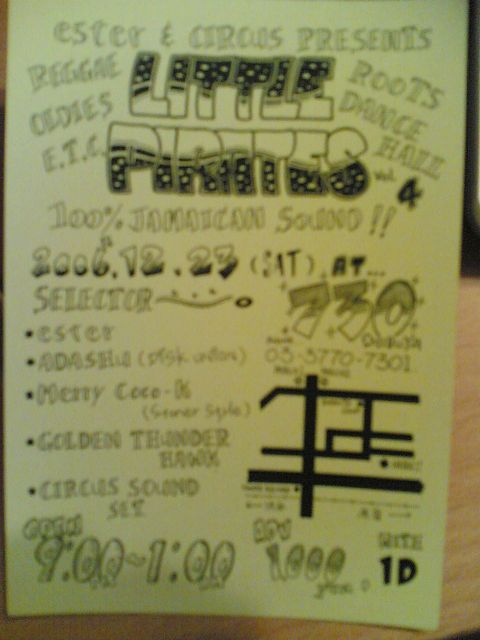 ester & CIRCUS PRESENTS
REGGAE
OLDIES
E.T.C.
LITTLE
PIRATES
vol. 4
ROOTS
DANCE
HALL
100% JAMAICAN SOUND!!
2006.12.23 (SAT) AT...
SELECTOR
730
03-5770-7301
• ester
• ADASHU (Disk union)
• Merry Coco-K
• GOLDEN THUNDER
HAWK
• CIRCUS SOUND
SET
OPEN
9:00~1:00
ADV
1000 yen
WITH
1D